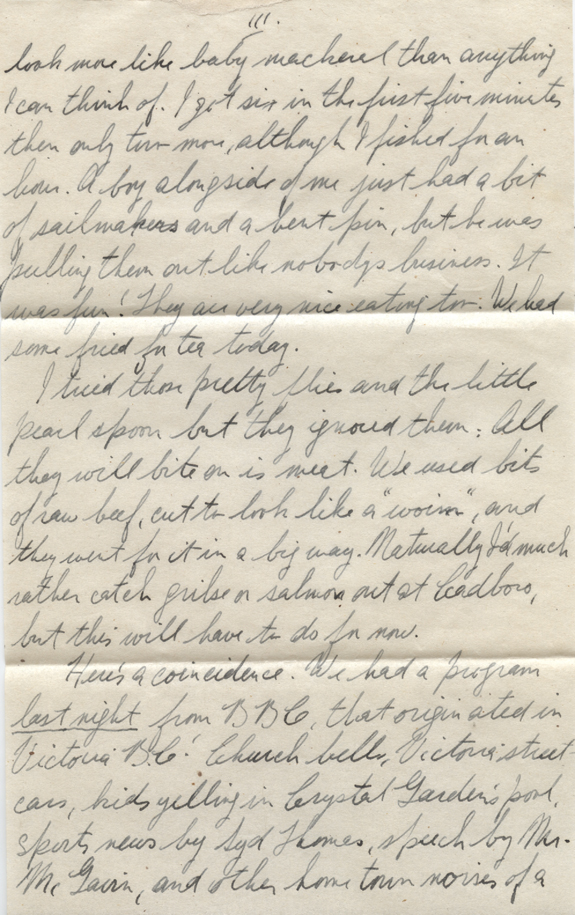 III.
look more like baby mackerel than anything
I can think of. I got six in the first five minutes
then only two more, although I fished for an
hour. A boy alongside of me just had a bit
of sailmakers and a bent pin, but he was
pulling them out like nobodys business. It
was fun! They are very nice eating too. We had
some fried for tea today.
I tried those pretty flies and the little
pearl spoon but they ignored them. All
they will bite on is meat. We used bits
of raw beef, cut to look like a "woim", and
they went for it in a big way. Naturally I'd much
rather catch grilse or salmon out at Cadboro,
but this will have to do for now.
Here's a coincidence. We had a program
last night from BBC, that originated in
Victoria BC! Church bells, Victoria street
cars, kids yelling in Crystal Gardens pool,
sports news by Syd Thomas, speech by Mr.
Mc Gavin, and other home town noises of a